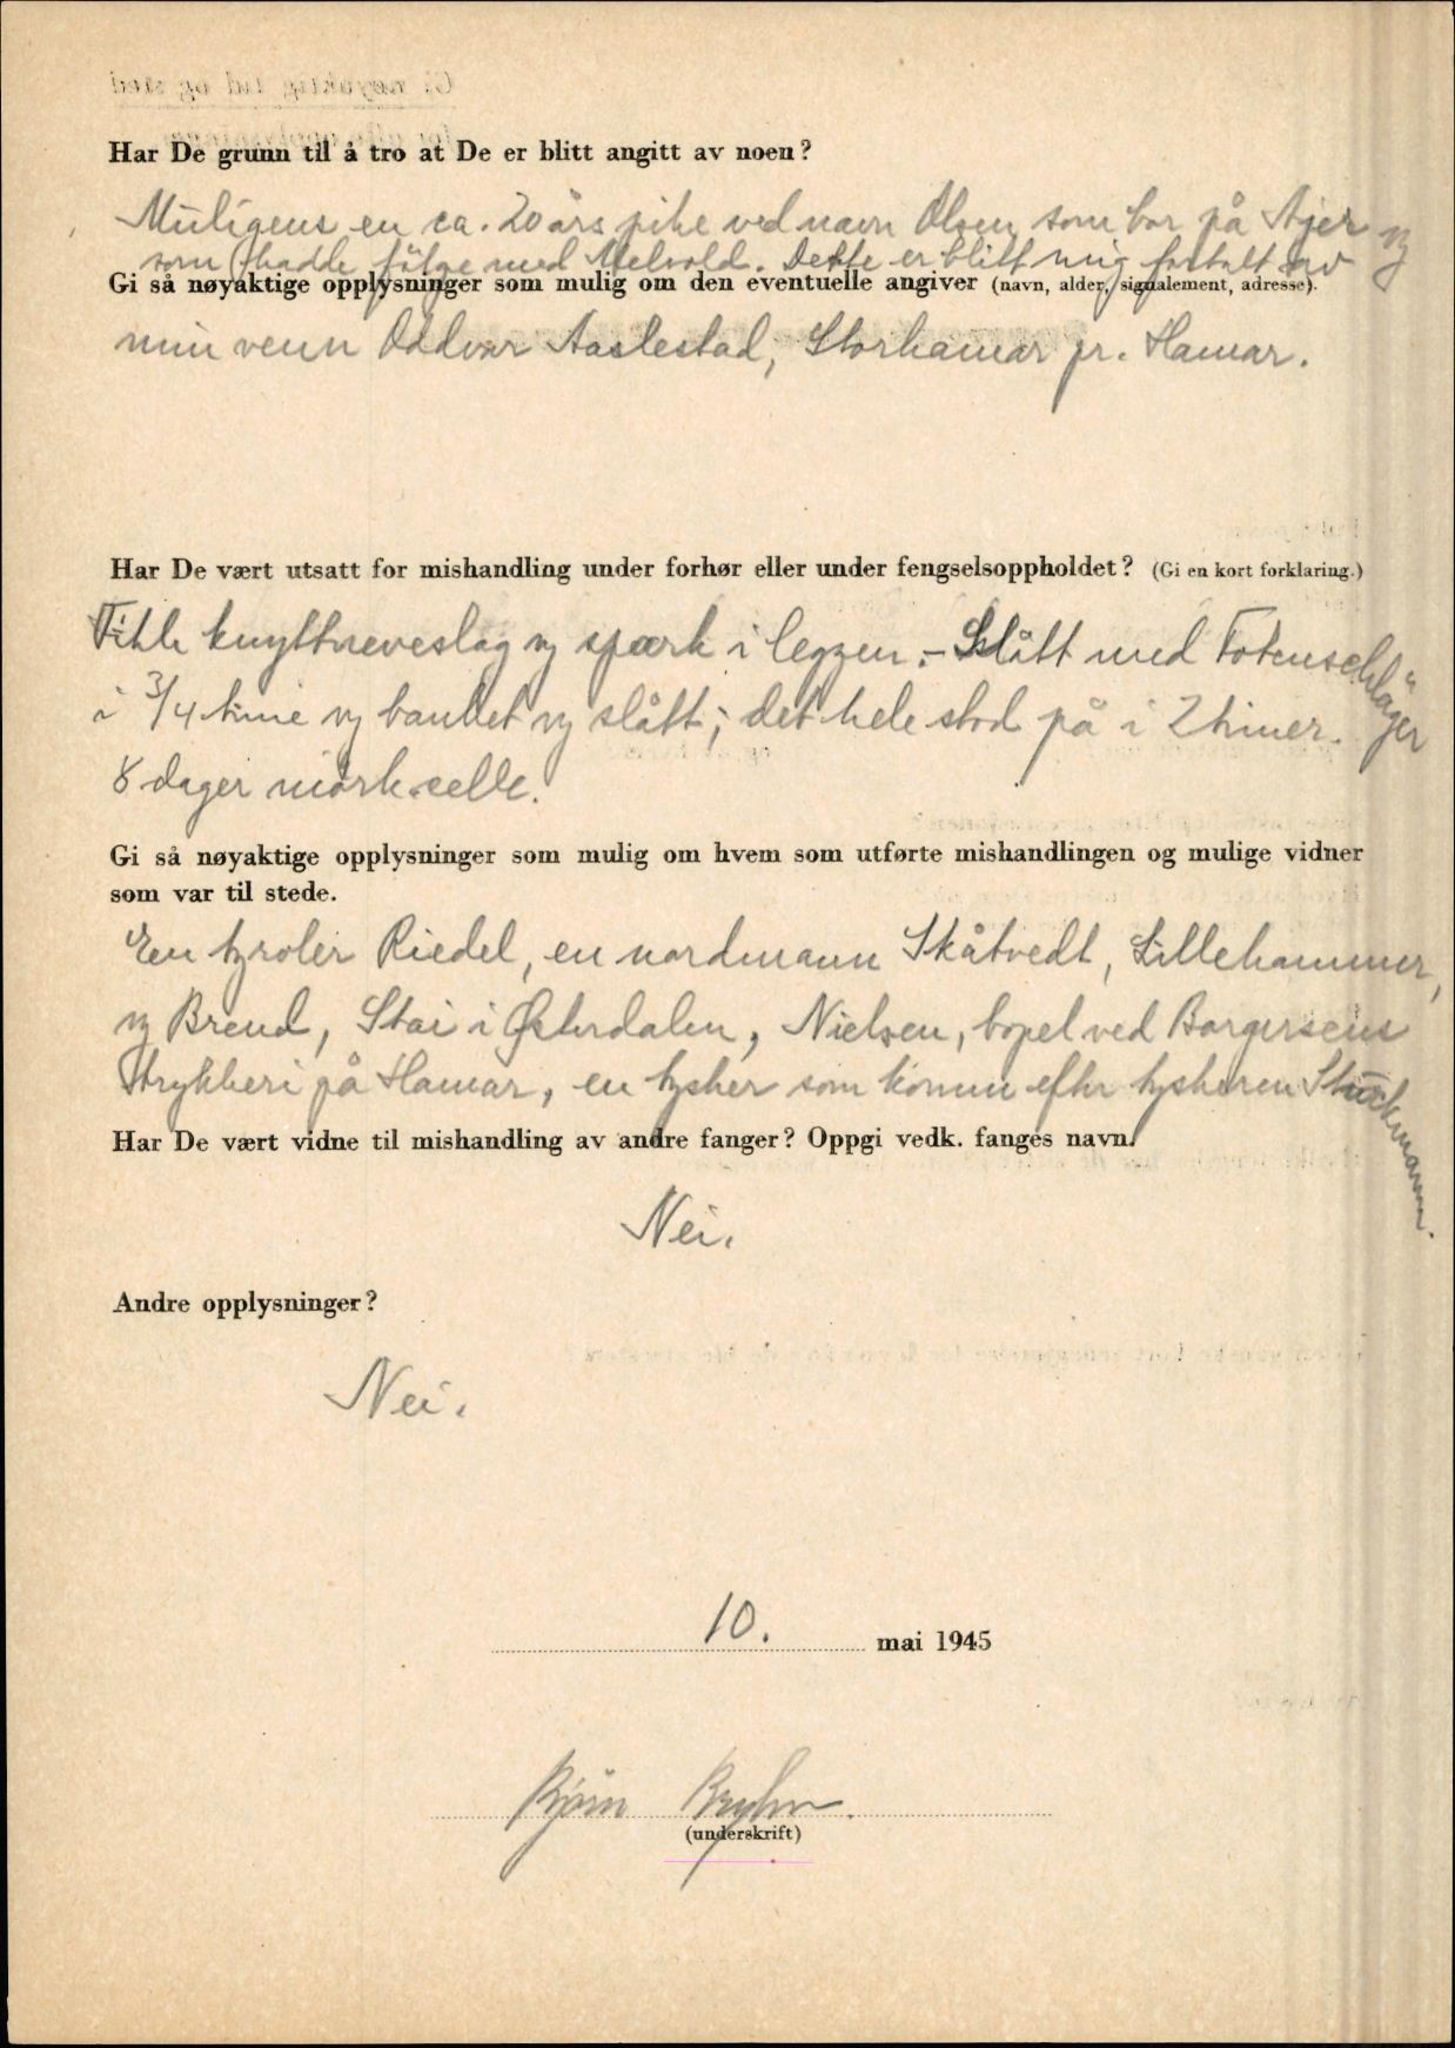 Har De grunn til å tro at De er blitt angitt av noen?
Muligens en ca. 20 års pike ved navn Olsen som bor på Ajer og
som hadde følge med Melvold. Dette er blitt mig fortalt av
Gi så nøyaktige opplysninger som mulig om den eventuelle angiver (navn, alder, signalement, adresse).
min venn Oddvar Aaslestad, Storhamar pr. Hamar.
Har De vært utsatt for mishandling under forhør eller under fengselsoppholdet? (Gi en kort forklaring.)
Fikk knyttneveslag og spark i leggen. - Slått med Totenschläger
i 3/4 time og banket og slått; det hele stod på i 2 timer.
8 dager mørk celle.
Gi så nøyaktige opplysninger som mulig om hvem som utførte mishandlingen og mulige vidner
som var til stede.
En tyroler Riedel, en nordmann Skåtvedt, Lillehammer,
og Brend, Stai i Østerdalen, Nielsen, bopel ved Borgersens
Strykkeri på Hamar, en tysker som kommer efter tyskeren Stuckmann.
Har De vært vidne til mishandling av andre fanger? Oppgi vedk. fanges navn.
Nei.
Andre opplysninger?
Nei.
10. mai 1945
Bjørn Bryhn.
(underskrift)